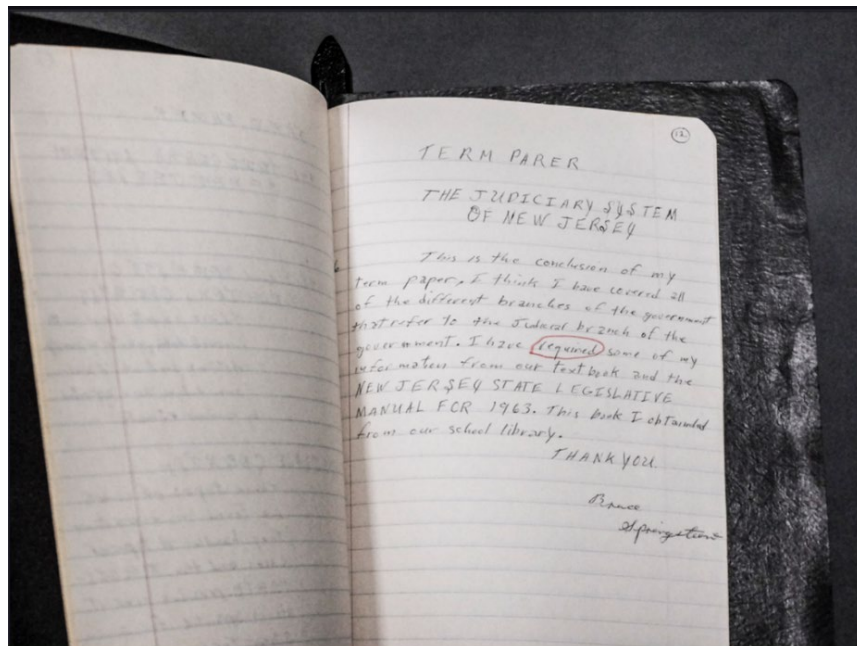 12
TERM PAPER
THE JUDICIARY SYSTEM
OF NEW JERSEY
This is the conclusion of my
term paper. I think I have covered all
of the different branches of the government
that refer to the Judicial branch of the
government. I have required some of my
information from our textbook and the
NEW JERSEY STATE LEGISLATIVE
MANUAL FOR 1963. This book I obtained
from our school library.
THANK YOU.
Bruce
Springsteen